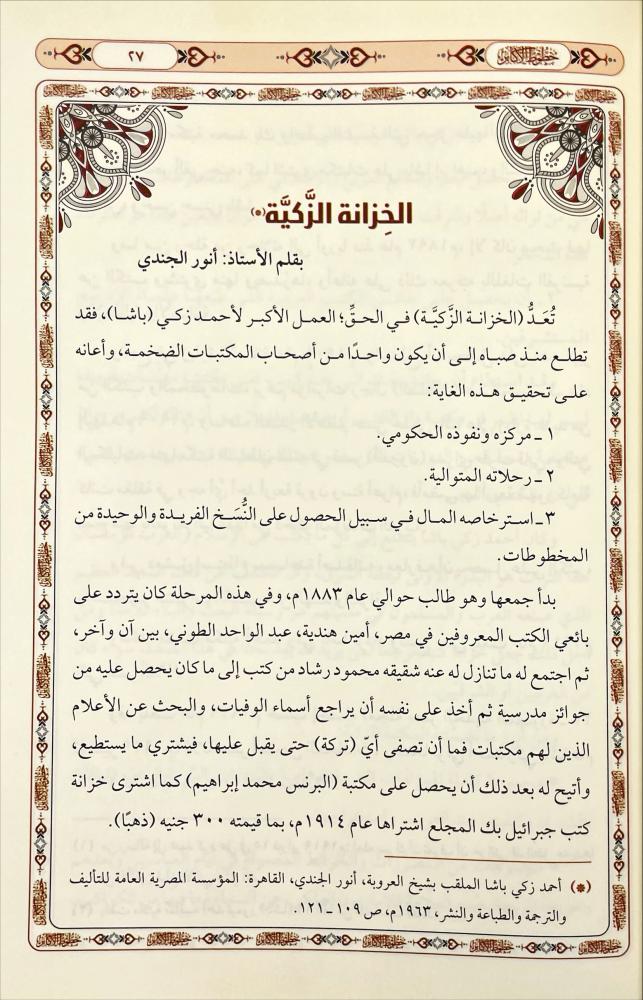 ٢٧
الخِزانة الزَّكيَّة(*)
بقلم الأستاذ: أنور الجندي
تُعَدُّ (الخزانة الزَّكيَّة) في الحقِّ؛ العمل الأكبر لأحمد زكي (باشا)، فقد
تطلع منذ صباه إلى أن يكون واحدًا من أصحاب المكتبات الضخمة، وأعانه
على تحقيق هذه الغاية:
١ ـ مركزه ونفوذه الحكومي.
٢ ـ رحلاته المتوالية.
٣ ـ استرخاصه المال في سبيل الحصول على النُّسَخ الفريدة والوحيدة من
المخطوطات.
بدأ جمعها وهو طالب حوالي عام ١٨٨٣م، وفي هذه المرحلة كان يتردد على
بائعي الكتب المعروفين في مصر، أمين هندية، عبد الواحد الطوني، بين آن وآخر،
ثم اجتمع له ما تنازل له عنه شقيقه محمود رشاد من كتب إلى ما كان يحصل عليه من
جوائز مدرسية ثم أخذ على نفسه أن يراجع أسماء الوفيات، والبحث عن الأعلام
الذين لهم مكتبات فما أن تصفى أيّ (تركة) حتى يقبل عليها، فيشتري ما يستطيع،
وأتيح له بعد ذلك أن يحصل على مكتبة (البرنس محمد إبراهيم) كما اشترى خزانة
كتب جبرائيل بك المجلع اشتراها عام ١٩١٤م، بما قيمته ٣٠٠ جنيه (ذهبًا).
(*) أحمد زكي باشا الملقب بشيخ العروبة، أنور الجندي، القاهرة: المؤسسة المصرية العامة للتأليف
والترجمة والطباعة والنشر، ١٩٦٣م، ص ١٠٩ ـ ١٢١.